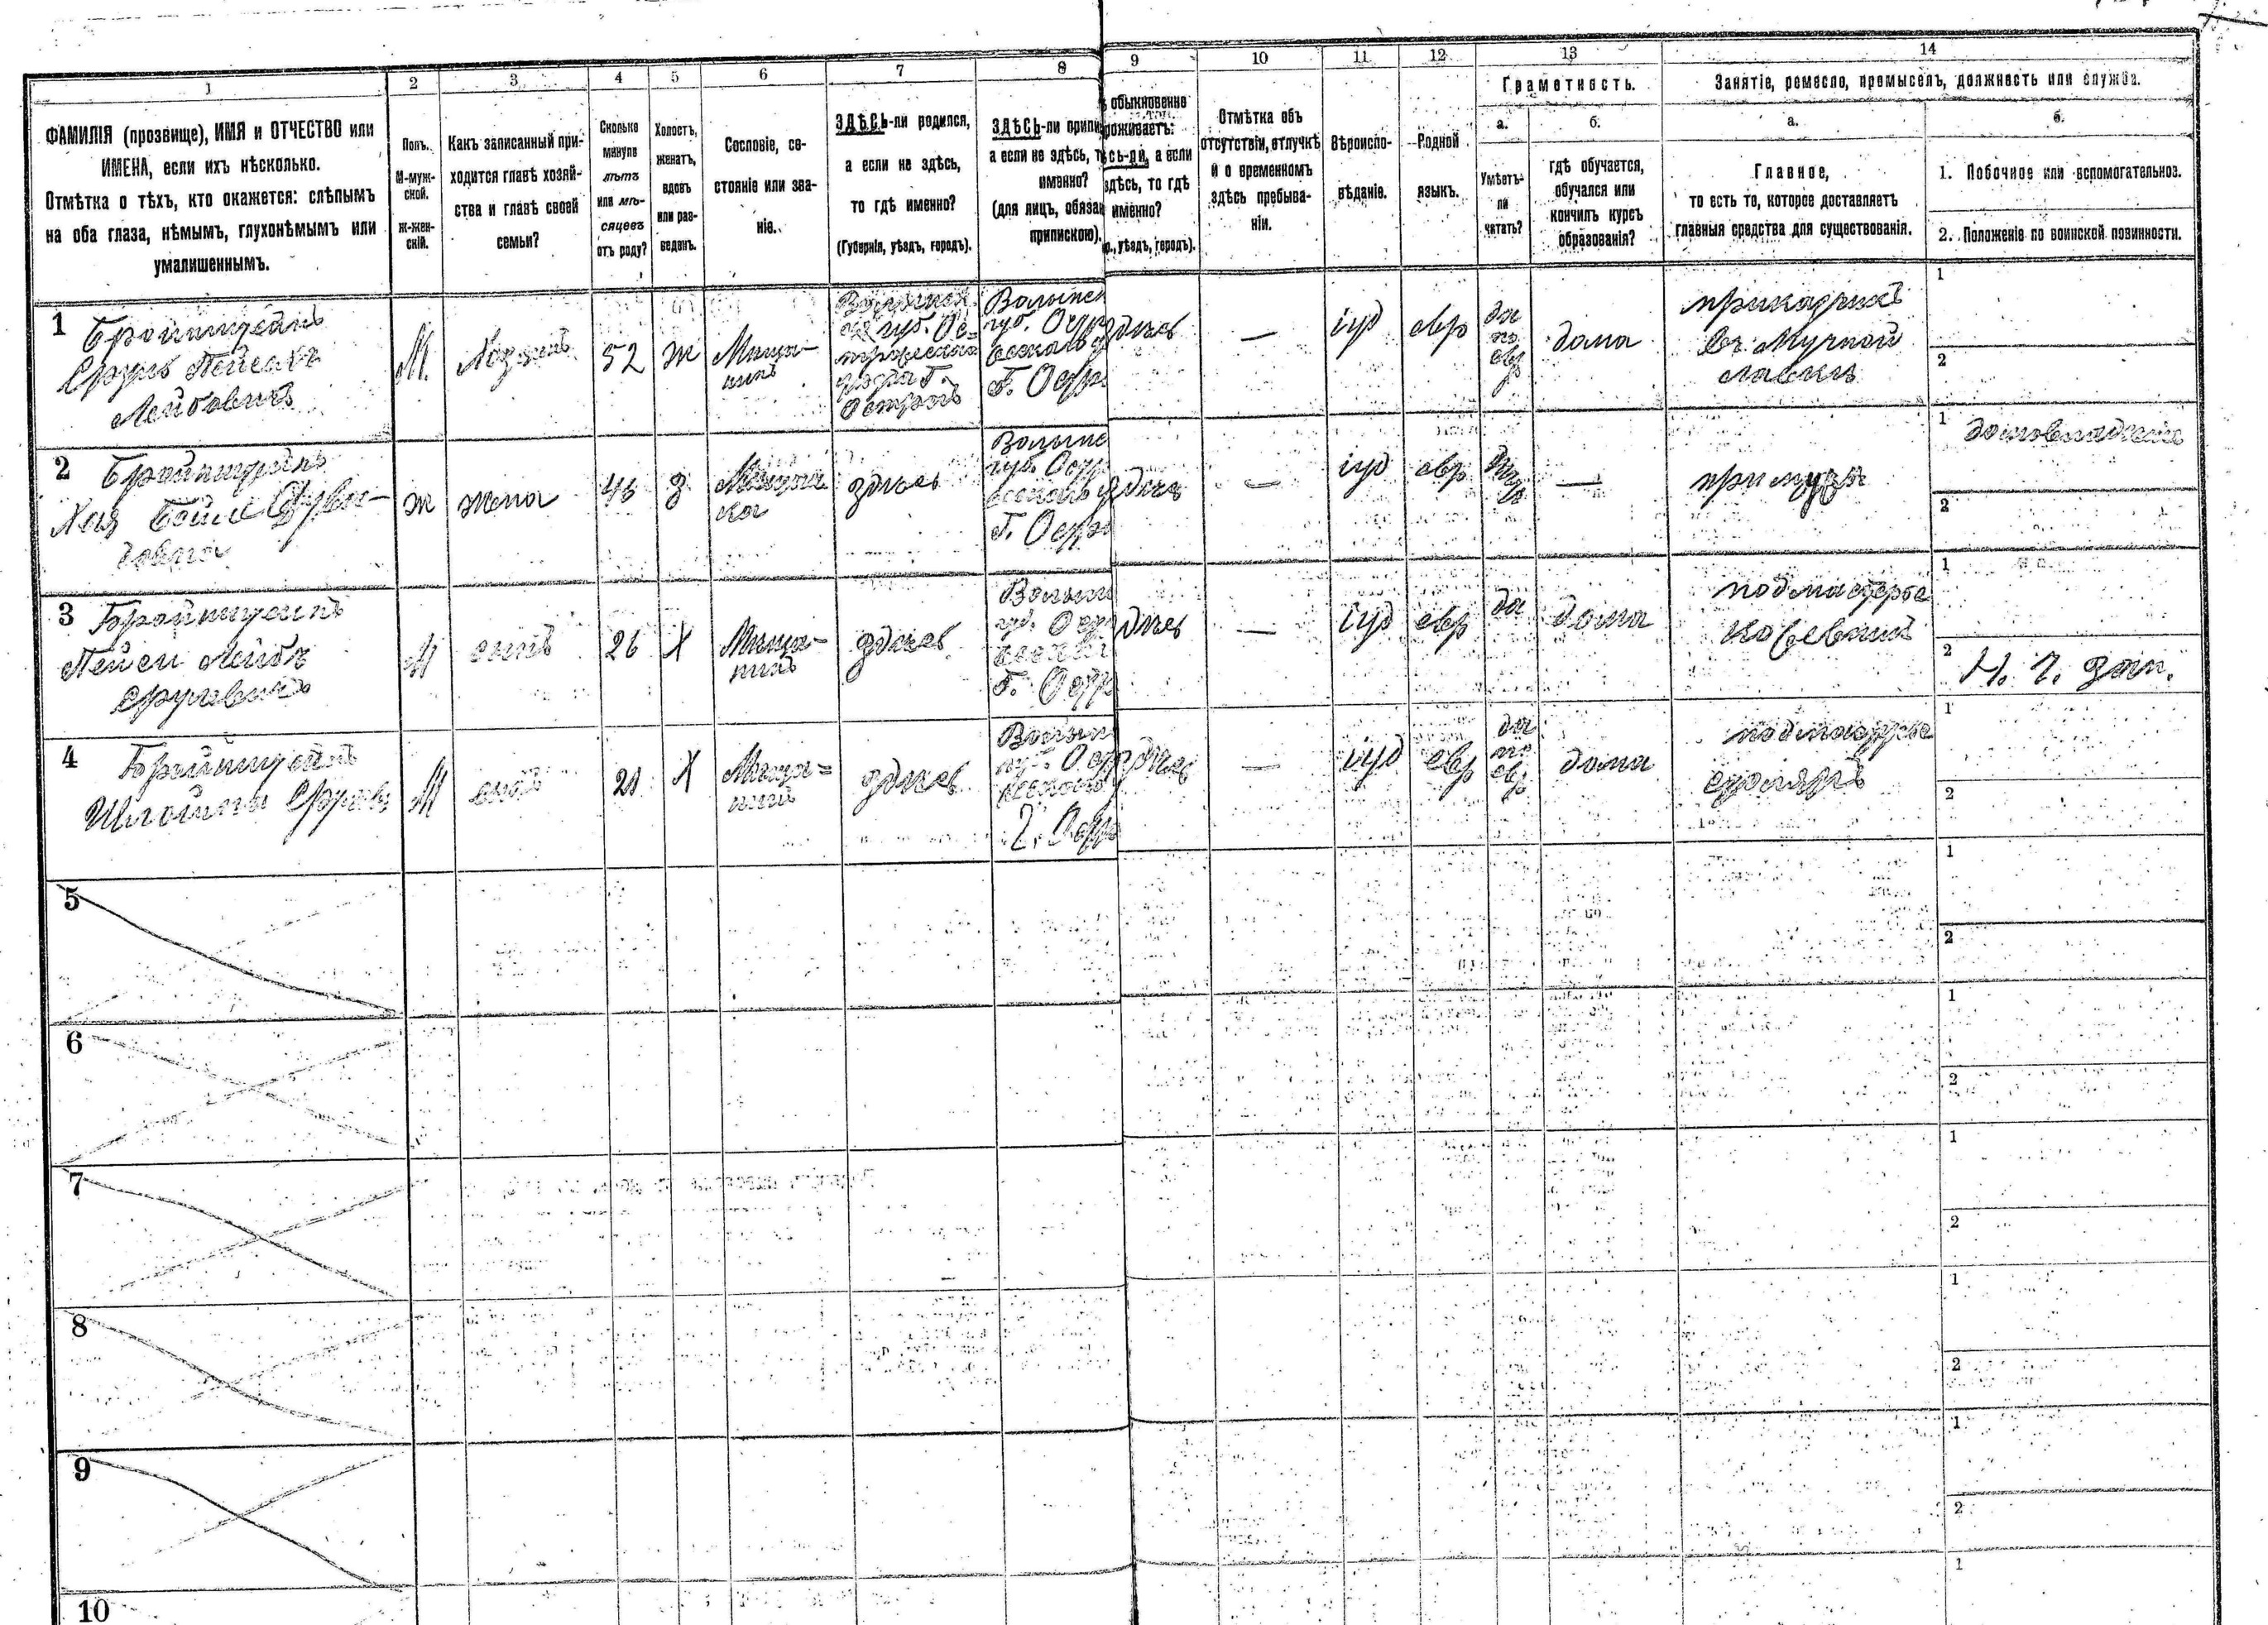 1
2
3
4
5
6
7
8
9
10
11
12
13
14
ФАМИЛІЯ (прозвище), ИМЯ и ОТЧЕСТВО или
ИМЕНА, если ихъ нѣсколько.
Отмѣтка о тѣхъ, кто окажется: слѣпымъ
на оба глаза, нѣмымъ, глухонѣмымъ или
умалишеннымъ.
Полъ.
М-муж-
ской.
Ж-жен-
скій.
Какъ записанный при-
ходится главѣ хозяй-
ства и главѣ своей
семьи?
Сколько
минуло
лѣтъ
или мѣ-
сяцевъ
отъ роду?
Холостъ,
женатъ,
вдовъ
или раз-
веденъ.
Сословіе, со-
стояніе или зва-
ніе.
ЗДѢСЬ-ли родился,
а если не здѣсь,
то гдѣ именно?
(Губернія, уѣздъ, городъ).
ЗДѢСЬ-ли припи
а если не здѣсь, т
именно?
(для лицъ, обяза
припискою).
обыкновенно
роживаетъ:
сь-ли, а если
здѣсь, то гдѣ
именно?
уѣздъ, городъ).
Отмѣтка объ
отсутствіи, отлучкѣ
и о временномъ
здѣсь пребыва-
ніи.
Вѣроиспо-
вѣданіе.
Родной
языкъ.
Грамотность.
а.
б.
Умѣетъ-
ли
читать?
гдѣ обучается,
обучался или
кончилъ курсъ
образованія?
Занятіе, ремесло, промыселъ, должность или служба.
а.
б.
Главное,
то есть то, которое доставляетъ
главныя средства для существованія.
1. Побочное или вспомогательное.
2. Положеніе по воинской повинности.
1
Лейбовичъ
М.
52
ж
Мѣща-
нинъ
губ. Ос-
Г.
Острогъ
Волынс
губ. Остр
Г. Остр
здѣсь
—
іуд
евр
да
по
евр
дома
прикащикъ
въ Мучной
лавкѣ
1
2
2
Хая
ж
жена
46
з
Мѣщан
ка
здѣсь
Волынс
губ. Остр
Г. Остр
здѣсь
—
іуд
евр
—
при мужѣ
1 домовладеніе
2
3
Лейбъ
Сруловичъ
М
сынъ
26
Х
Мѣща-
нинъ
здѣсь
Волын
губ. Остр
Г. Остр
здѣсь
—
іуд
евр
да
дома
подмастерье
1
2
4
М
сынъ
21
Х
Мѣща-
нинъ
здѣсь
Волын
губ. Остр
Г. Остр
здѣсь
—
іуд
евр
да
по
евр
дома
подмастерье
столяръ
1
2
5
1
2
6
1
2
7
1
2
8
1
2
9
1
2
10
1